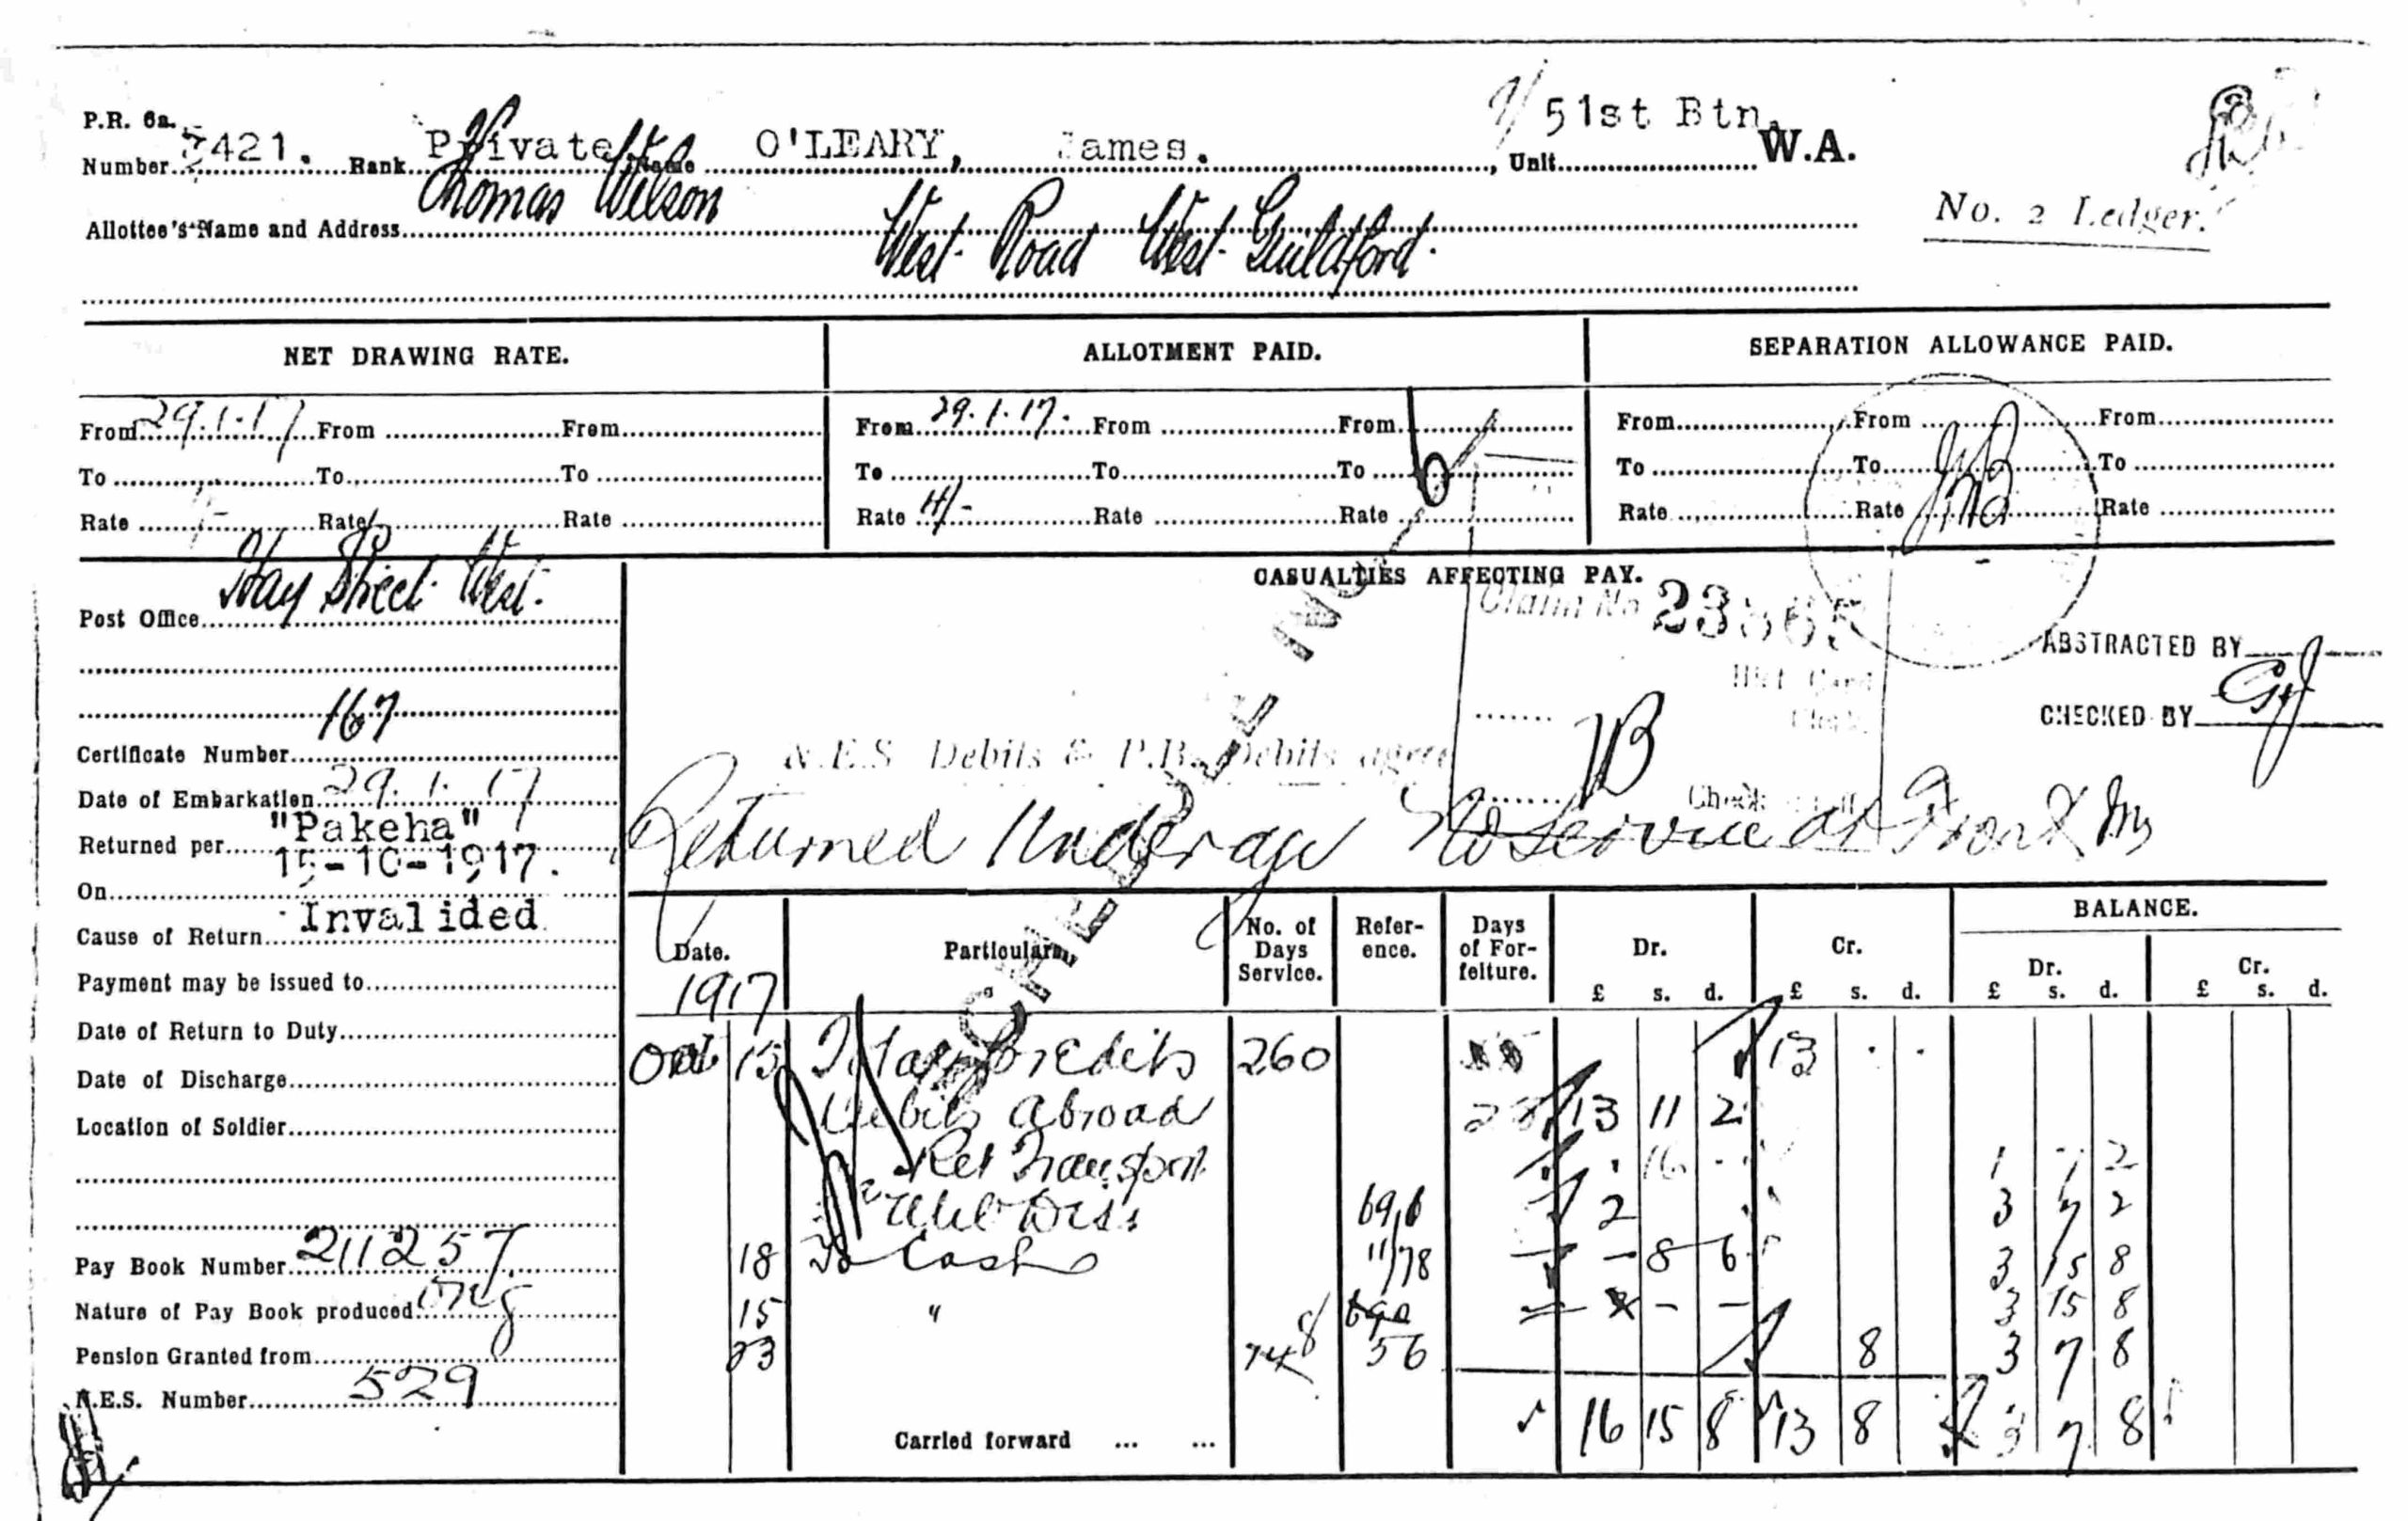 P.R. 6a.
Number 421. Rank Private Name O'LEARY, James. , Unit 51st Btn. W.A.
Allottee's Name and Address Thomas Wilson
West Road West Guildford.
No. 2 Ledger.
NET DRAWING RATE. ALLOTMENT PAID. SEPARATION ALLOWANCE PAID.
From 29.1.17 From From From 29.1.17. From From From From From
To To To To To To To To To
Rate Rate Rate Rate 4/- Rate Rate Rate Rate Rate
Post Office Hay Street West.
CASUALTIES AFFECTING PAY.
Claim No
ABSTRACTED BY
CHECKED BY
167
Certificate Number
N.E.S Debits & P.B. Debits agree
Date of Embarkation 29.1.17
Returned per "Pakeha"
On 15-10-1917.
Cause of Return Invalided
Returned Underage No Service at Front
Payment may be issued to
Date of Return to Duty
Date of Discharge
Location of Soldier
Pay Book Number 211257
Nature of Pay Book produced orig
Pension Granted from
N.E.S. Number 529
Date. Particulars. No. of Days Service. Reference. Days of Forfeiture. Dr. Cr. BALANCE.
Dr. Cr.
£ s. d. £ s. d. £ s. d. £ s. d.
1917
Oct 15 Total Credits 260 13 . .
Debits Abroad 13 11 2
Ret Transport . 16 - 1 7 2
2 3 7 2
18 To Cash 11/78 - 8 6 3 15 8
15 " - - 3 15 8
23 56 8 3 7 8
Carried forward ... ... 16 15 8 13 8 3 7 8